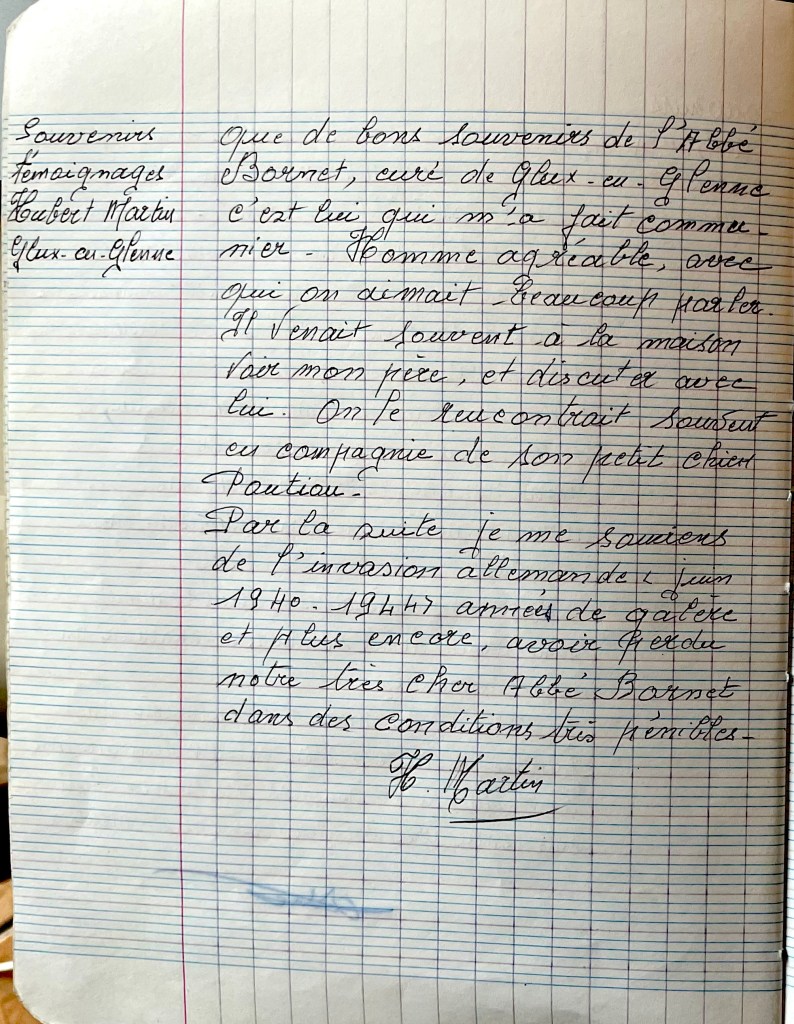 Souvenirs
témoignages
Hubert Martin
Glux-en-Glenne
que de bons souvenirs de l'Abbé
Bornet, curé de Glux-en-Glenne
c'est lui qui m'a fait commu-
nier - Homme agréable, avec
qui on aimait beaucoup parler.
Il venait souvent à la maison
voir mon père, et discuter avec
lui. On le rencontrait souvent
en compagnie de son petit chien
Pantiou.
Par la suite je me souviens
de l'invasion allemande < juin
1940-1944> années de galère
et plus encore, avoir perdu
notre très cher Abbé Bornet
dans des conditions très pénibles-
H. Martin